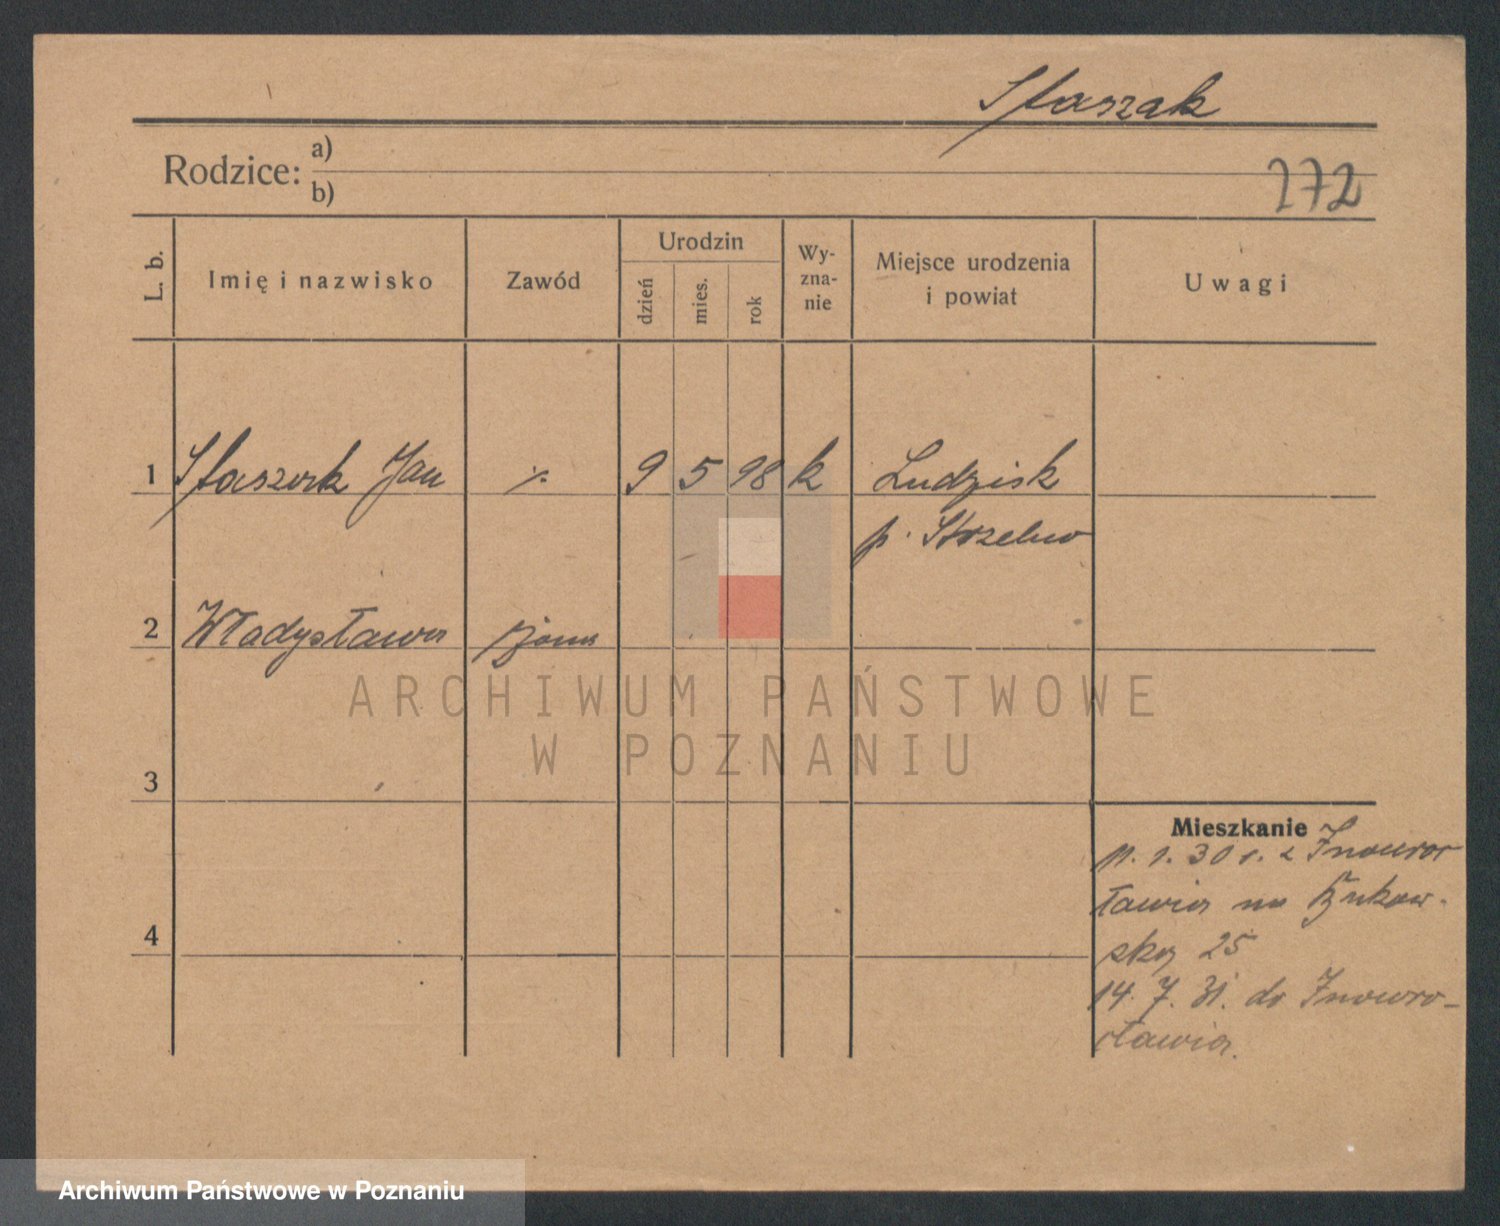 Staszak
Rodzice: a)
b)
272
L. b.
Imię i nazwisko
Zawód
Urodzin
dzień
mies.
rok
Wy-
zna-
nie
Miejsce urodzenia
i powiat
Uwagi
1 Staszak Jan 9 5 98 k Ludzisk
p. Strzelno
2 Władysława żona
ARCHIWUM PAŃSTWOWE
W POZNANIU
3
Mieszkanie
1. 30 r. z Inowroc
ławia na Bukow-
4
ską 25
14. 7. 31. do Inowro-
cławia.
Archiwum Państwowe w Poznaniu